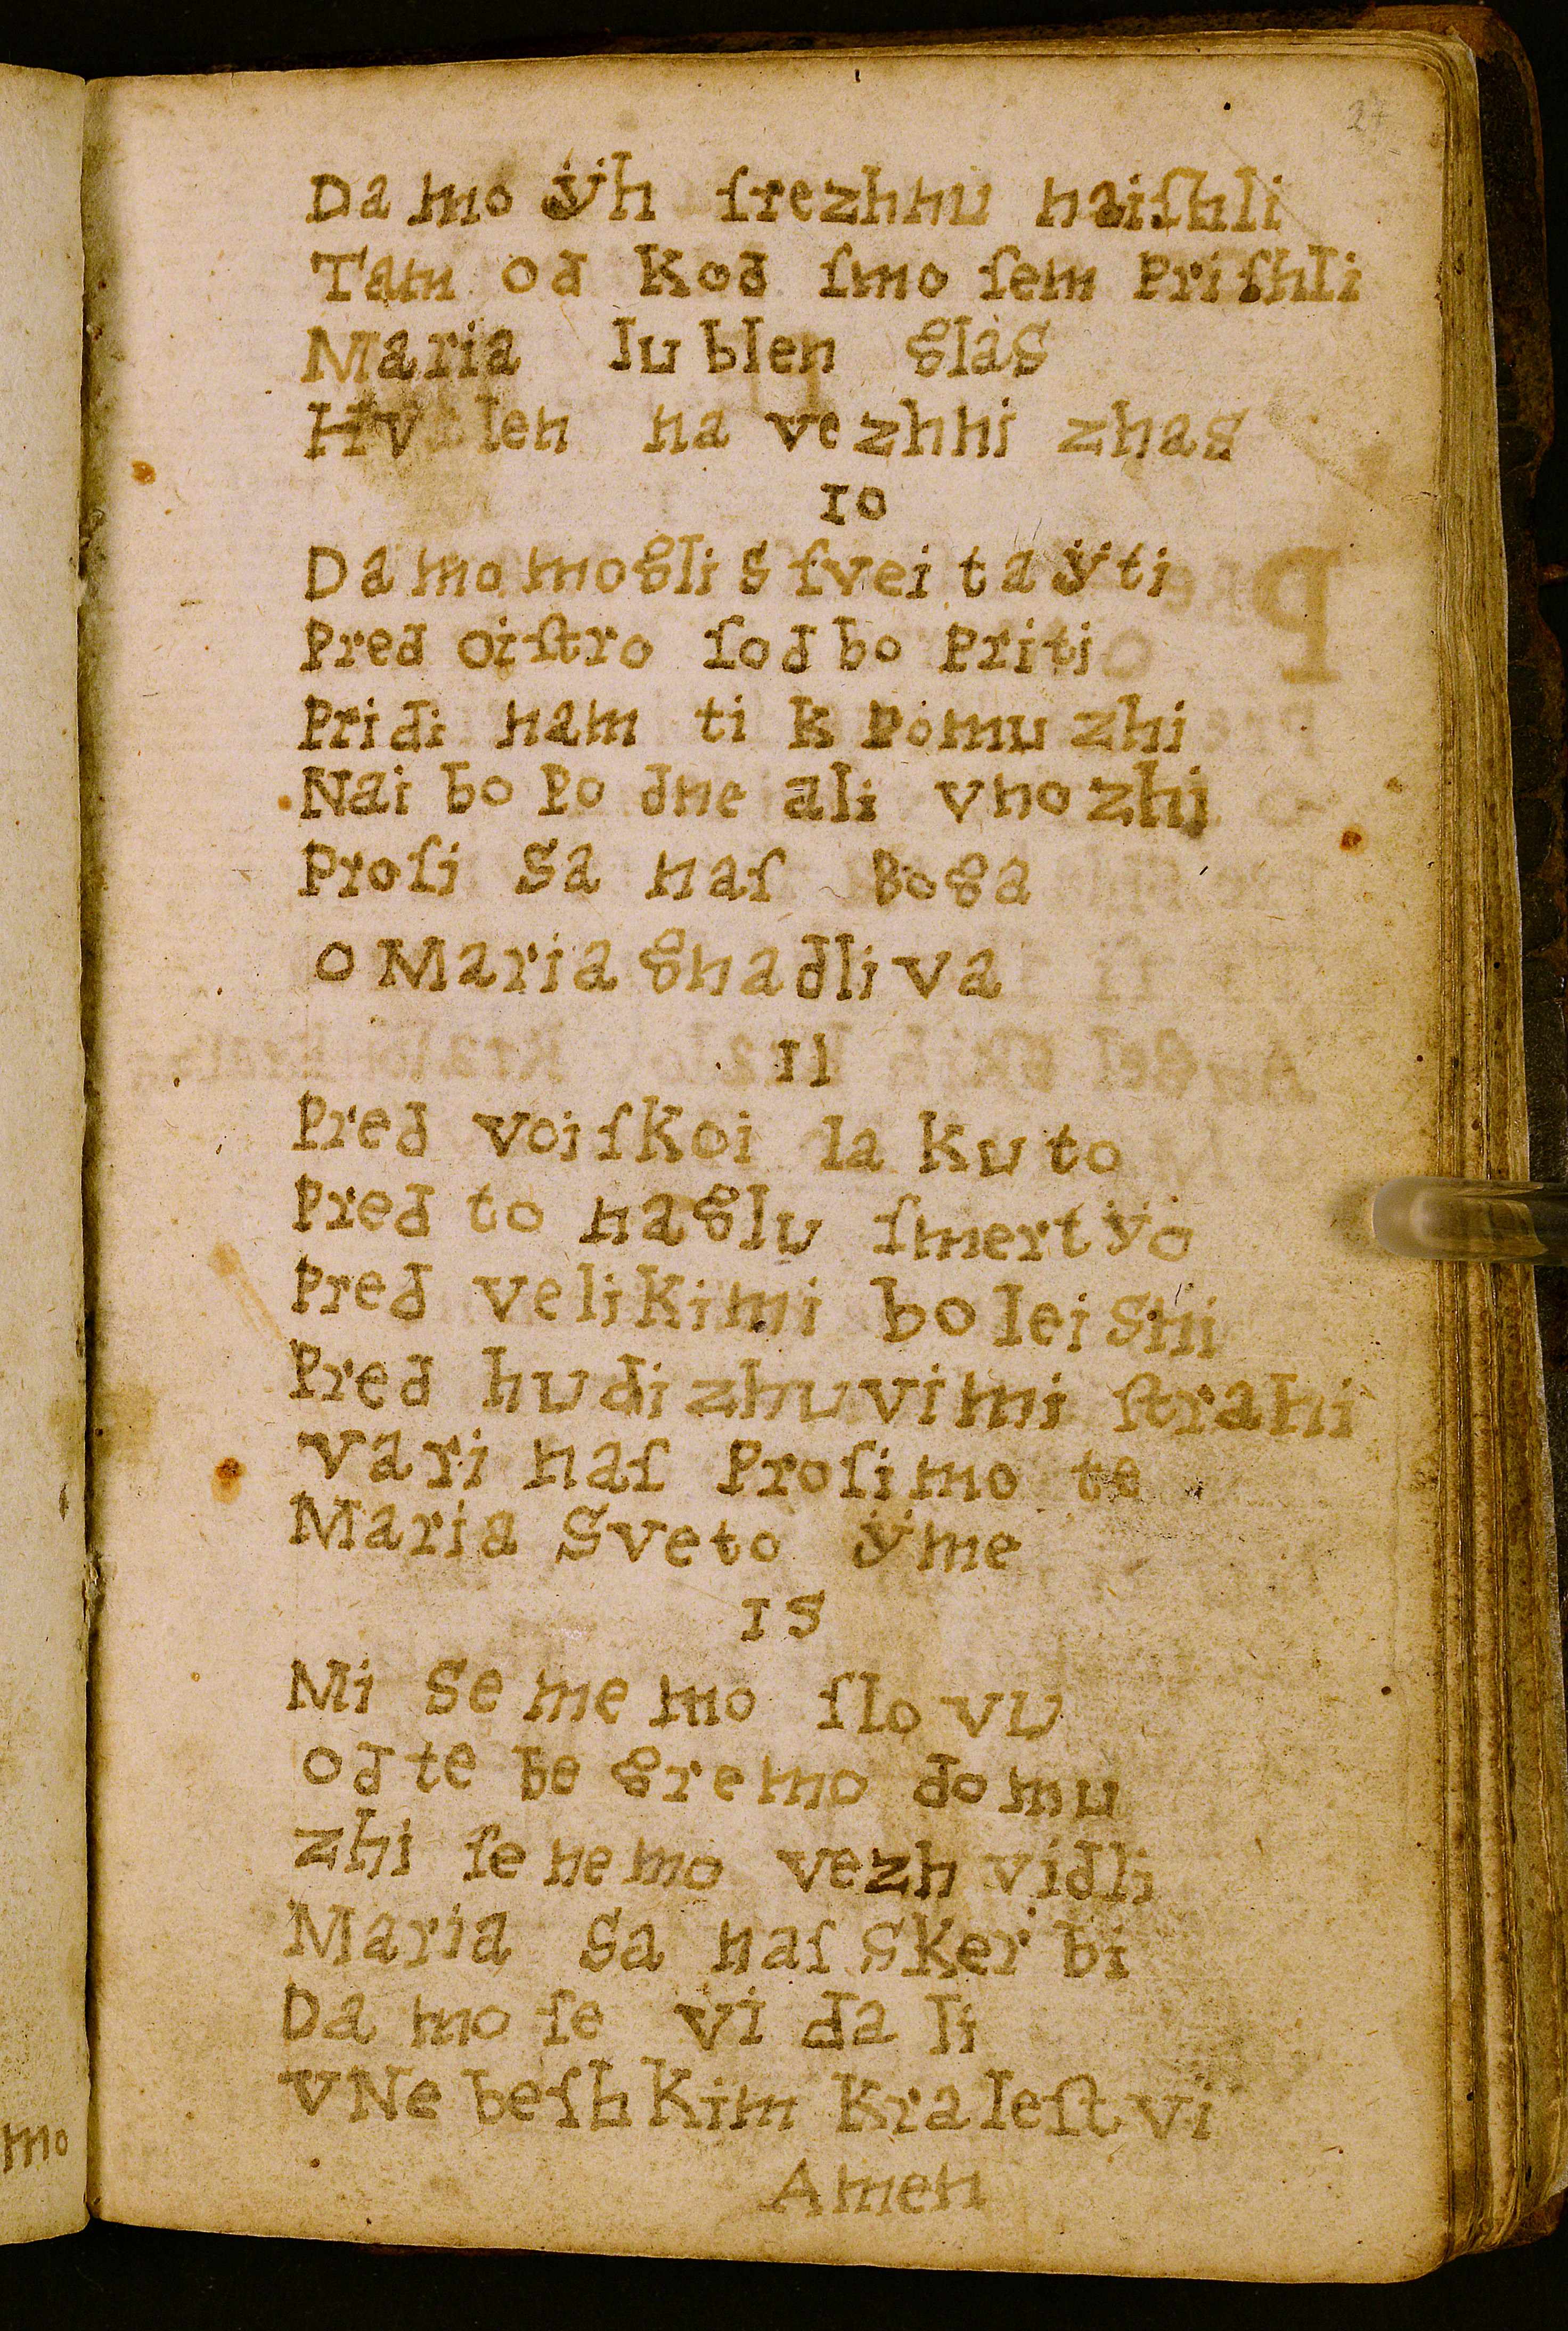 27
Da mo ÿh ſrezhnu naiſhli
Tam od kod ſmo ſem Priſhli
Maria lublen glas
Hvalen na vezhni zhas
10
Da mo mogli s ſveita ÿti
Pred oiſtro ſodbo Priti
Pridi nam ti k Pomuzhi
Nai bo Po dne ali vnozhi
Proſi sa naſ Boga
o Maria gnadliva
11
Pred voiſkoi lakuto
Pred to naglu ſmertÿo
Pred velikimi boleisni
Pred hudizhuvimi ſtrahi
vari naſ Proſimo te
Maria Sveto ÿme
1S
Mi Sememo ſlovu
od tebe gremo domu
zhi ſe nemo vezh vidli
Maria Sa naſ skerbi
Da mo ſe vidali
vNebeſhkim Kraleſtvi
Amen
mo